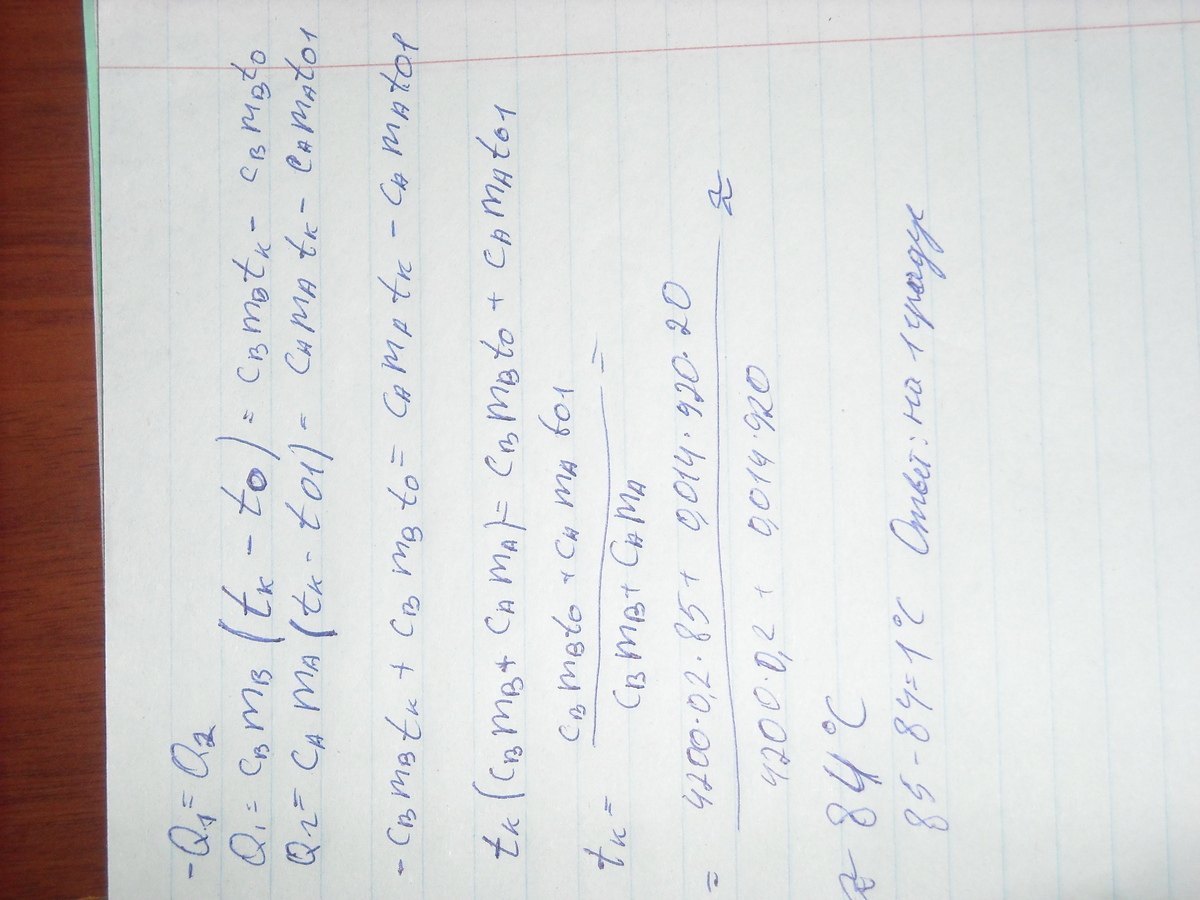 -Q₁ = Q₂
Q₁ = cв mв (tк - t0) = cв mв tк - cв mв t0
Q₂ = cА mА (tк - t01) = cА mА tк - cА mА t01
- cв mв tк + cв mв t0 = cА mА tк - cА mА t01
tк (cв mв + cА mА) = cв mв t0 + cА mА t01
tк = (cв mв t0 + cА mА t01) / (cв mв + cА mА) =
= (4200·0,2·85 + 0,014·920·20) / (4200·0,2 + 0,014·920) ≈
≈ 84°C
85 - 84 = 1°C Ответ: на 1 градус